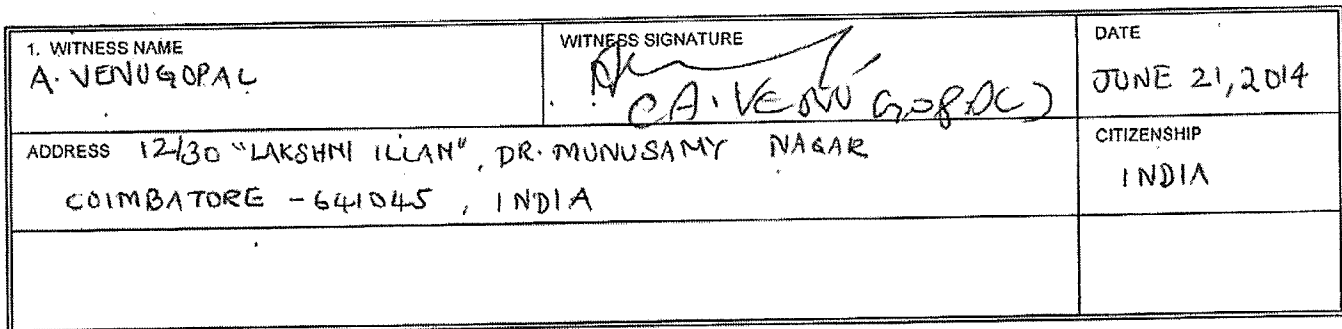 1. WITNESS NAME
A. VENUGOPAL
WITNESS SIGNATURE
(A. VENUGOPAL)
DATE
JUNE 21, 2014
ADDRESS 12/30 "LAKSHMI ILLAM", DR. MUNUSAMY NAGAR
COIMBATORE - 641045, INDIA
CITIZENSHIP
INDIA